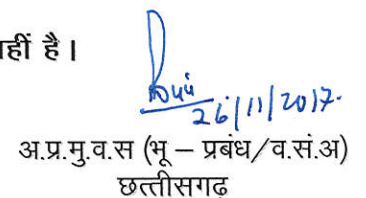 हीं है।
26/11/2017.
अ.प्र.मु.व.स (भू – प्रबंध/व.सं.अ)
छत्तीसगढ़